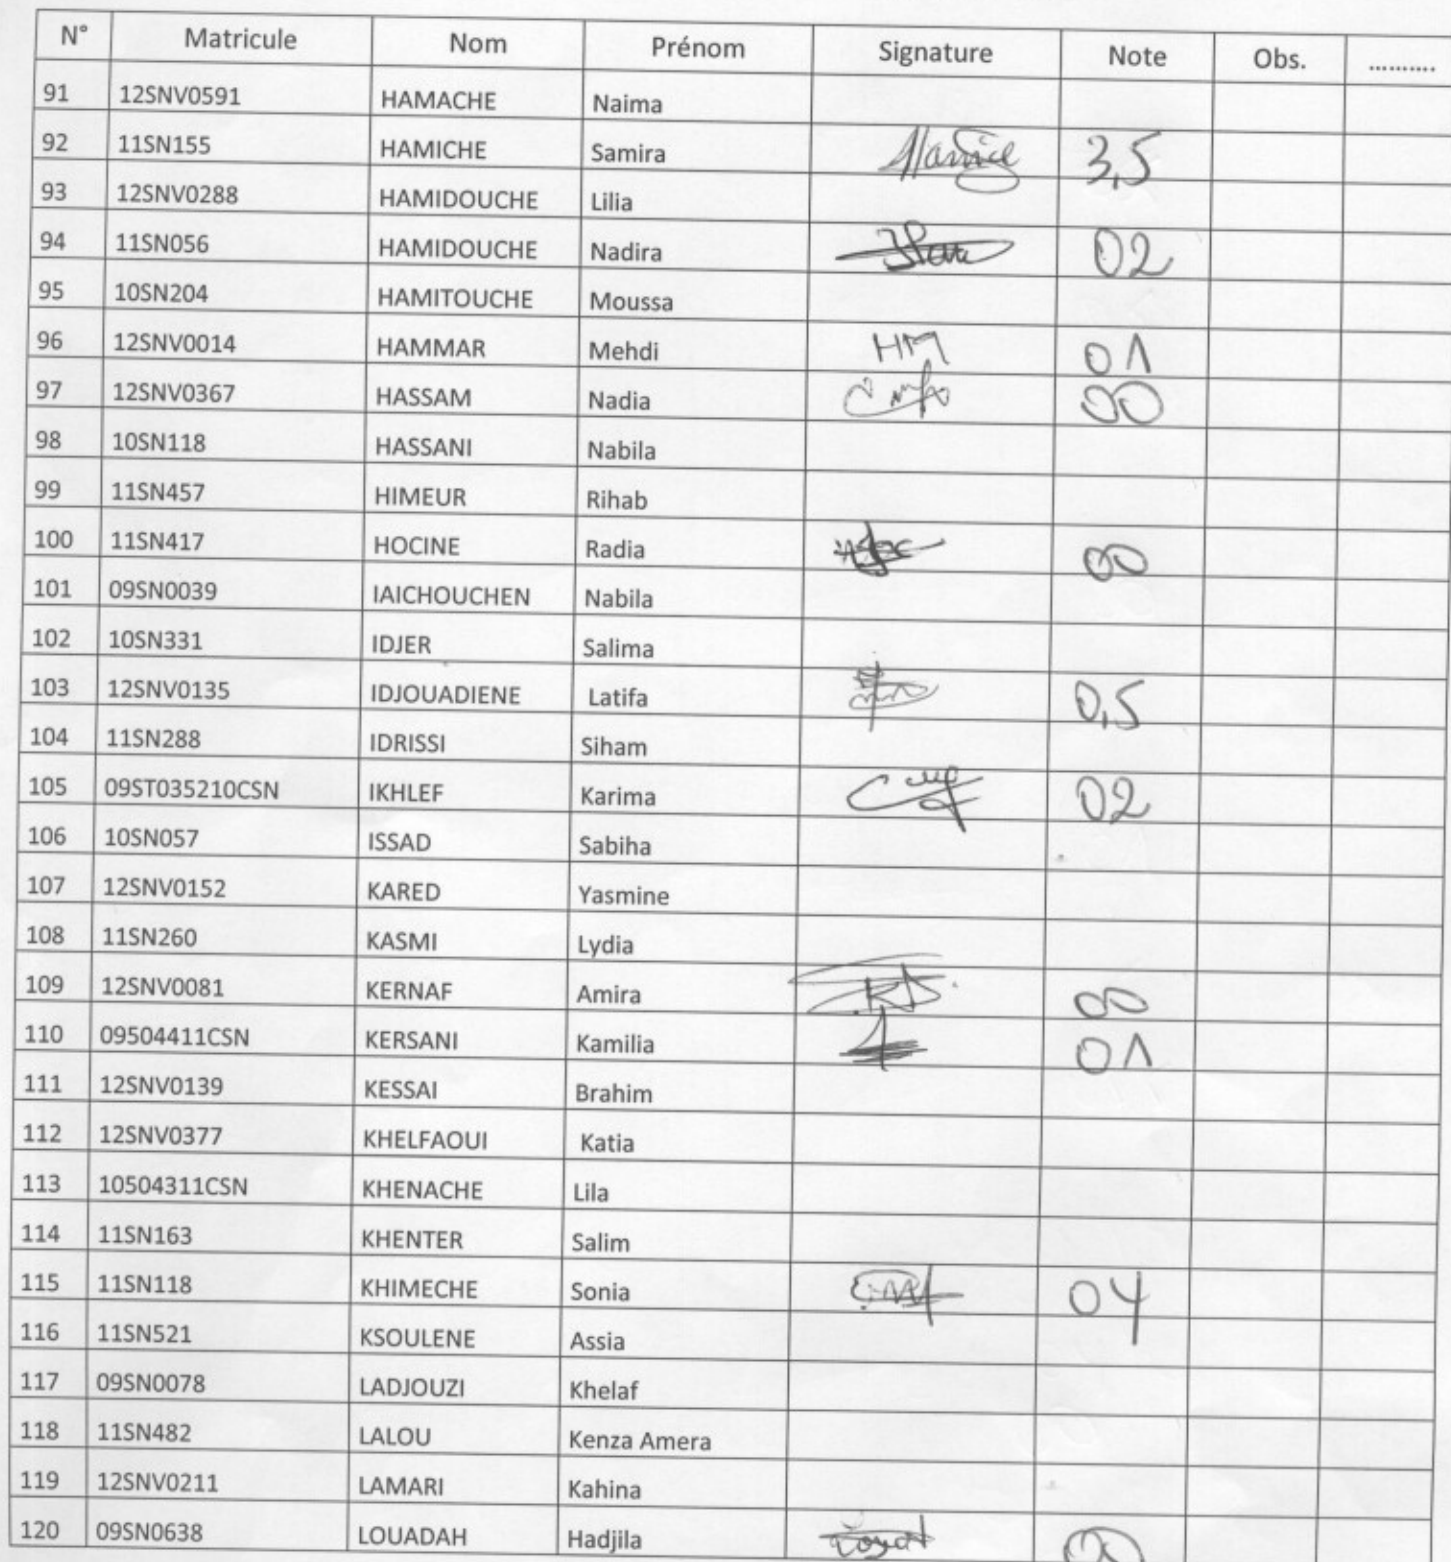 N° Matricule Nom Prénom Signature Note Obs. ..........
91 12SNV0591 HAMACHE Naima
92 11SN155 HAMICHE Samira 3,5
93 12SNV0288 HAMIDOUCHE Lilia
94 11SN056 HAMIDOUCHE Nadira 02
95 10SN204 HAMITOUCHE Moussa
96 12SNV0014 HAMMAR Mehdi HM 01
97 12SNV0367 HASSAM Nadia 00
98 10SN118 HASSANI Nabila
99 11SN457 HIMEUR Rihab
100 11SN417 HOCINE Radia 00
101 09SN0039 IAICHOUCHEN Nabila
102 10SN331 IDJER Salima
103 12SNV0135 IDJOUADIENE Latifa 0,5
104 11SN288 IDRISSI Siham
105 09ST035210CSN IKHLEF Karima 02
106 10SN057 ISSAD Sabiha
107 12SNV0152 KARED Yasmine
108 11SN260 KASMI Lydia
109 12SNV0081 KERNAF Amira 00
110 09504411CSN KERSANI Kamilia 01
111 12SNV0139 KESSAI Brahim
112 12SNV0377 KHELFAOUI Katia
113 10504311CSN KHENACHE Lila
114 11SN163 KHENTER Salim
115 11SN118 KHIMECHE Sonia 04
116 11SN521 KSOULENE Assia
117 09SN0078 LADJOUZI Khelaf
118 11SN482 LALOU Kenza Amera
119 12SNV0211 LAMARI Kahina
120 09SN0638 LOUADAH Hadjila 00